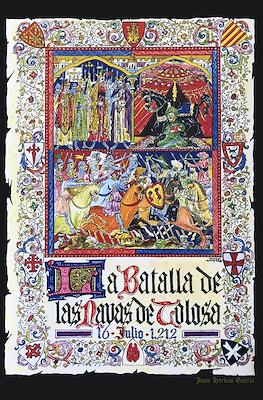 La Batalla de
las Navas de Tolosa
16 · Julio · 1.212
Juan Hervás García